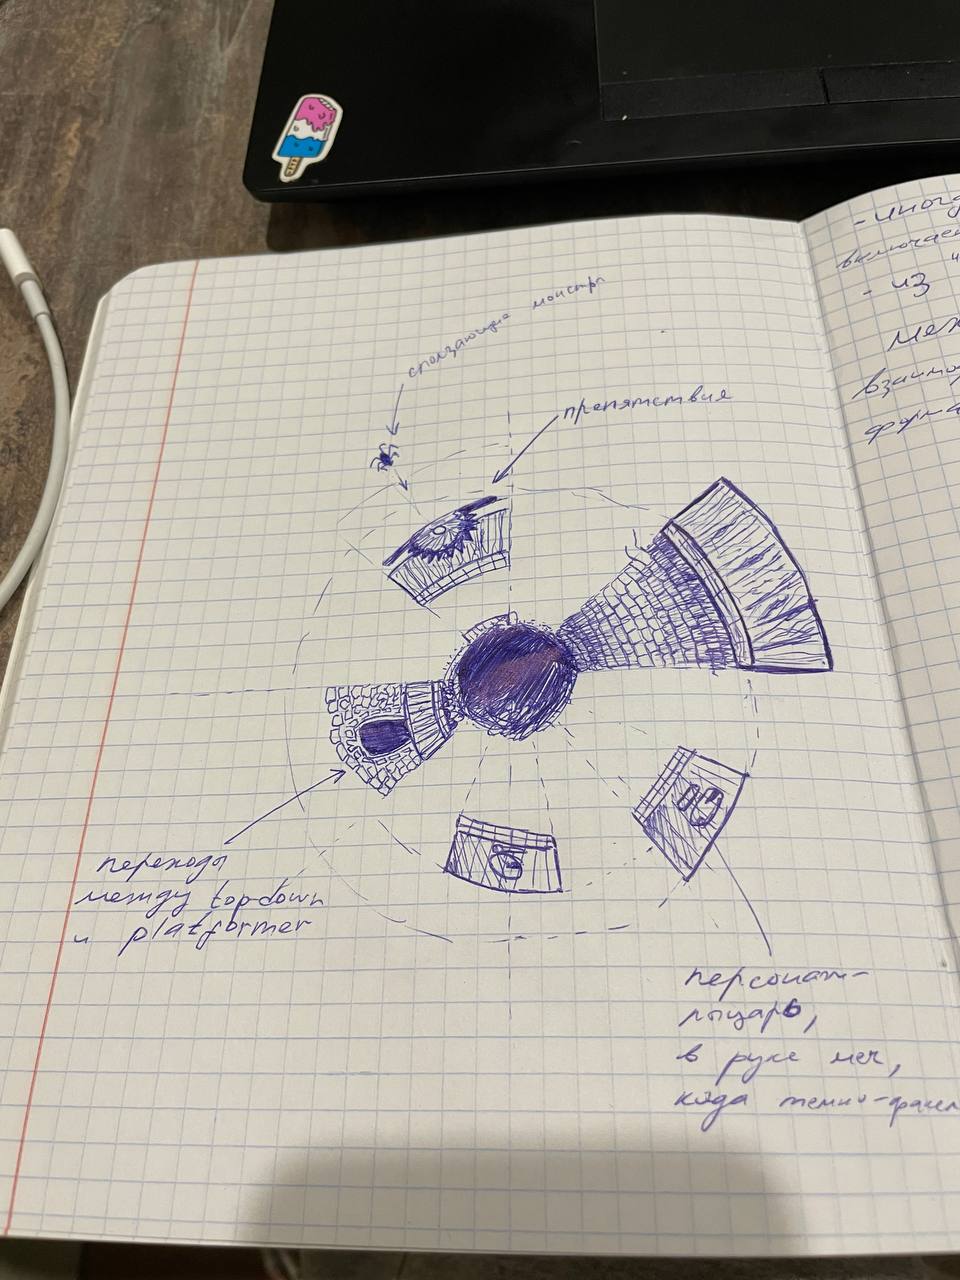 сползающие монстры
препятствия
переходы
между topdown
и platformer
персонаж-
рыцарь,
в руке меч,
когда темно-факел
- иногда
включает
- из
меж
взаимо
форма